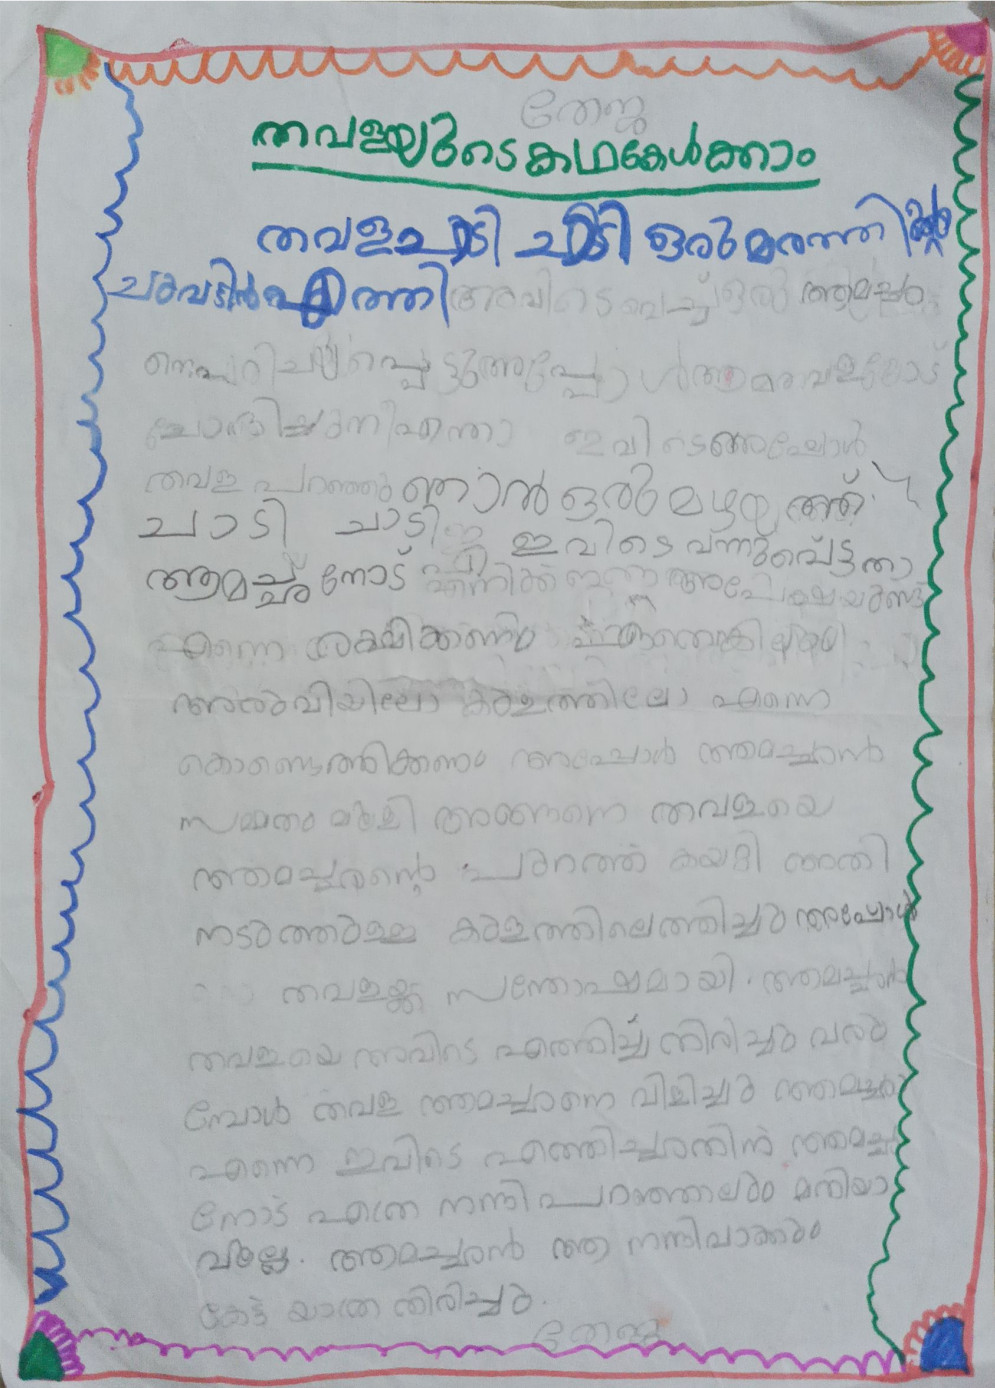 തേജു
തവളയുടെ കഥകേൾക്കാം
തവള ചാടി ചാടി ഒരു മരത്തിന്റെ
ചുവട്ടിൽ എത്തി അവിടെ വെച്ച് ഒരു ആമച്ചാ
നെ പരിചയപ്പെട്ടു അപ്പോൾ ആമ തവളയോട്
ചോദിച്ചു നീ എന്താ ഇവിടെ അപ്പോൾ
തവള പറഞ്ഞു ഞാൻ ഒരു മഴയത്ത്
ചാടി ചാടി ഇവിടെ വന്നുപെട്ടതാ
ആമച്ചാനോട് എനിക്ക് ഒരു അപേക്ഷയുണ്ട്
എന്നെ രക്ഷിക്കണം ഏതെങ്കിലും
അരുവിയിലോ കുളത്തിലോ എന്നെ
കൊണ്ടെത്തിക്കണം അപ്പോൾ ആമച്ചാൻ
സമ്മതം മൂളി അങ്ങനെ തവളയെ
ആമച്ചാന്റെ പുറത്ത് കയറ്റി അതി
നടുത്തുള്ള കുളത്തിലെത്തിച്ചു അപ്പോൾ
തവളയ്ക്ക് സന്തോഷമായി. ആമച്ചാൻ
തവളയെ അവിടെ എത്തിച്ച് തിരിച്ചു വരു
മ്പോൾ തവള ആമച്ചാനെ വിളിച്ചു ആമച്ചാ
എന്നെ ഇവിടെ എത്തിച്ചതിൻ ആമച്ചാ
നോട് എത്ര നന്ദി പറഞ്ഞാലും മതിയാ
വില്ല. ആമച്ചാൻ ആ നന്ദിവാക്കും
കേട്ട് യാത്ര തിരിച്ചു.
തേജു